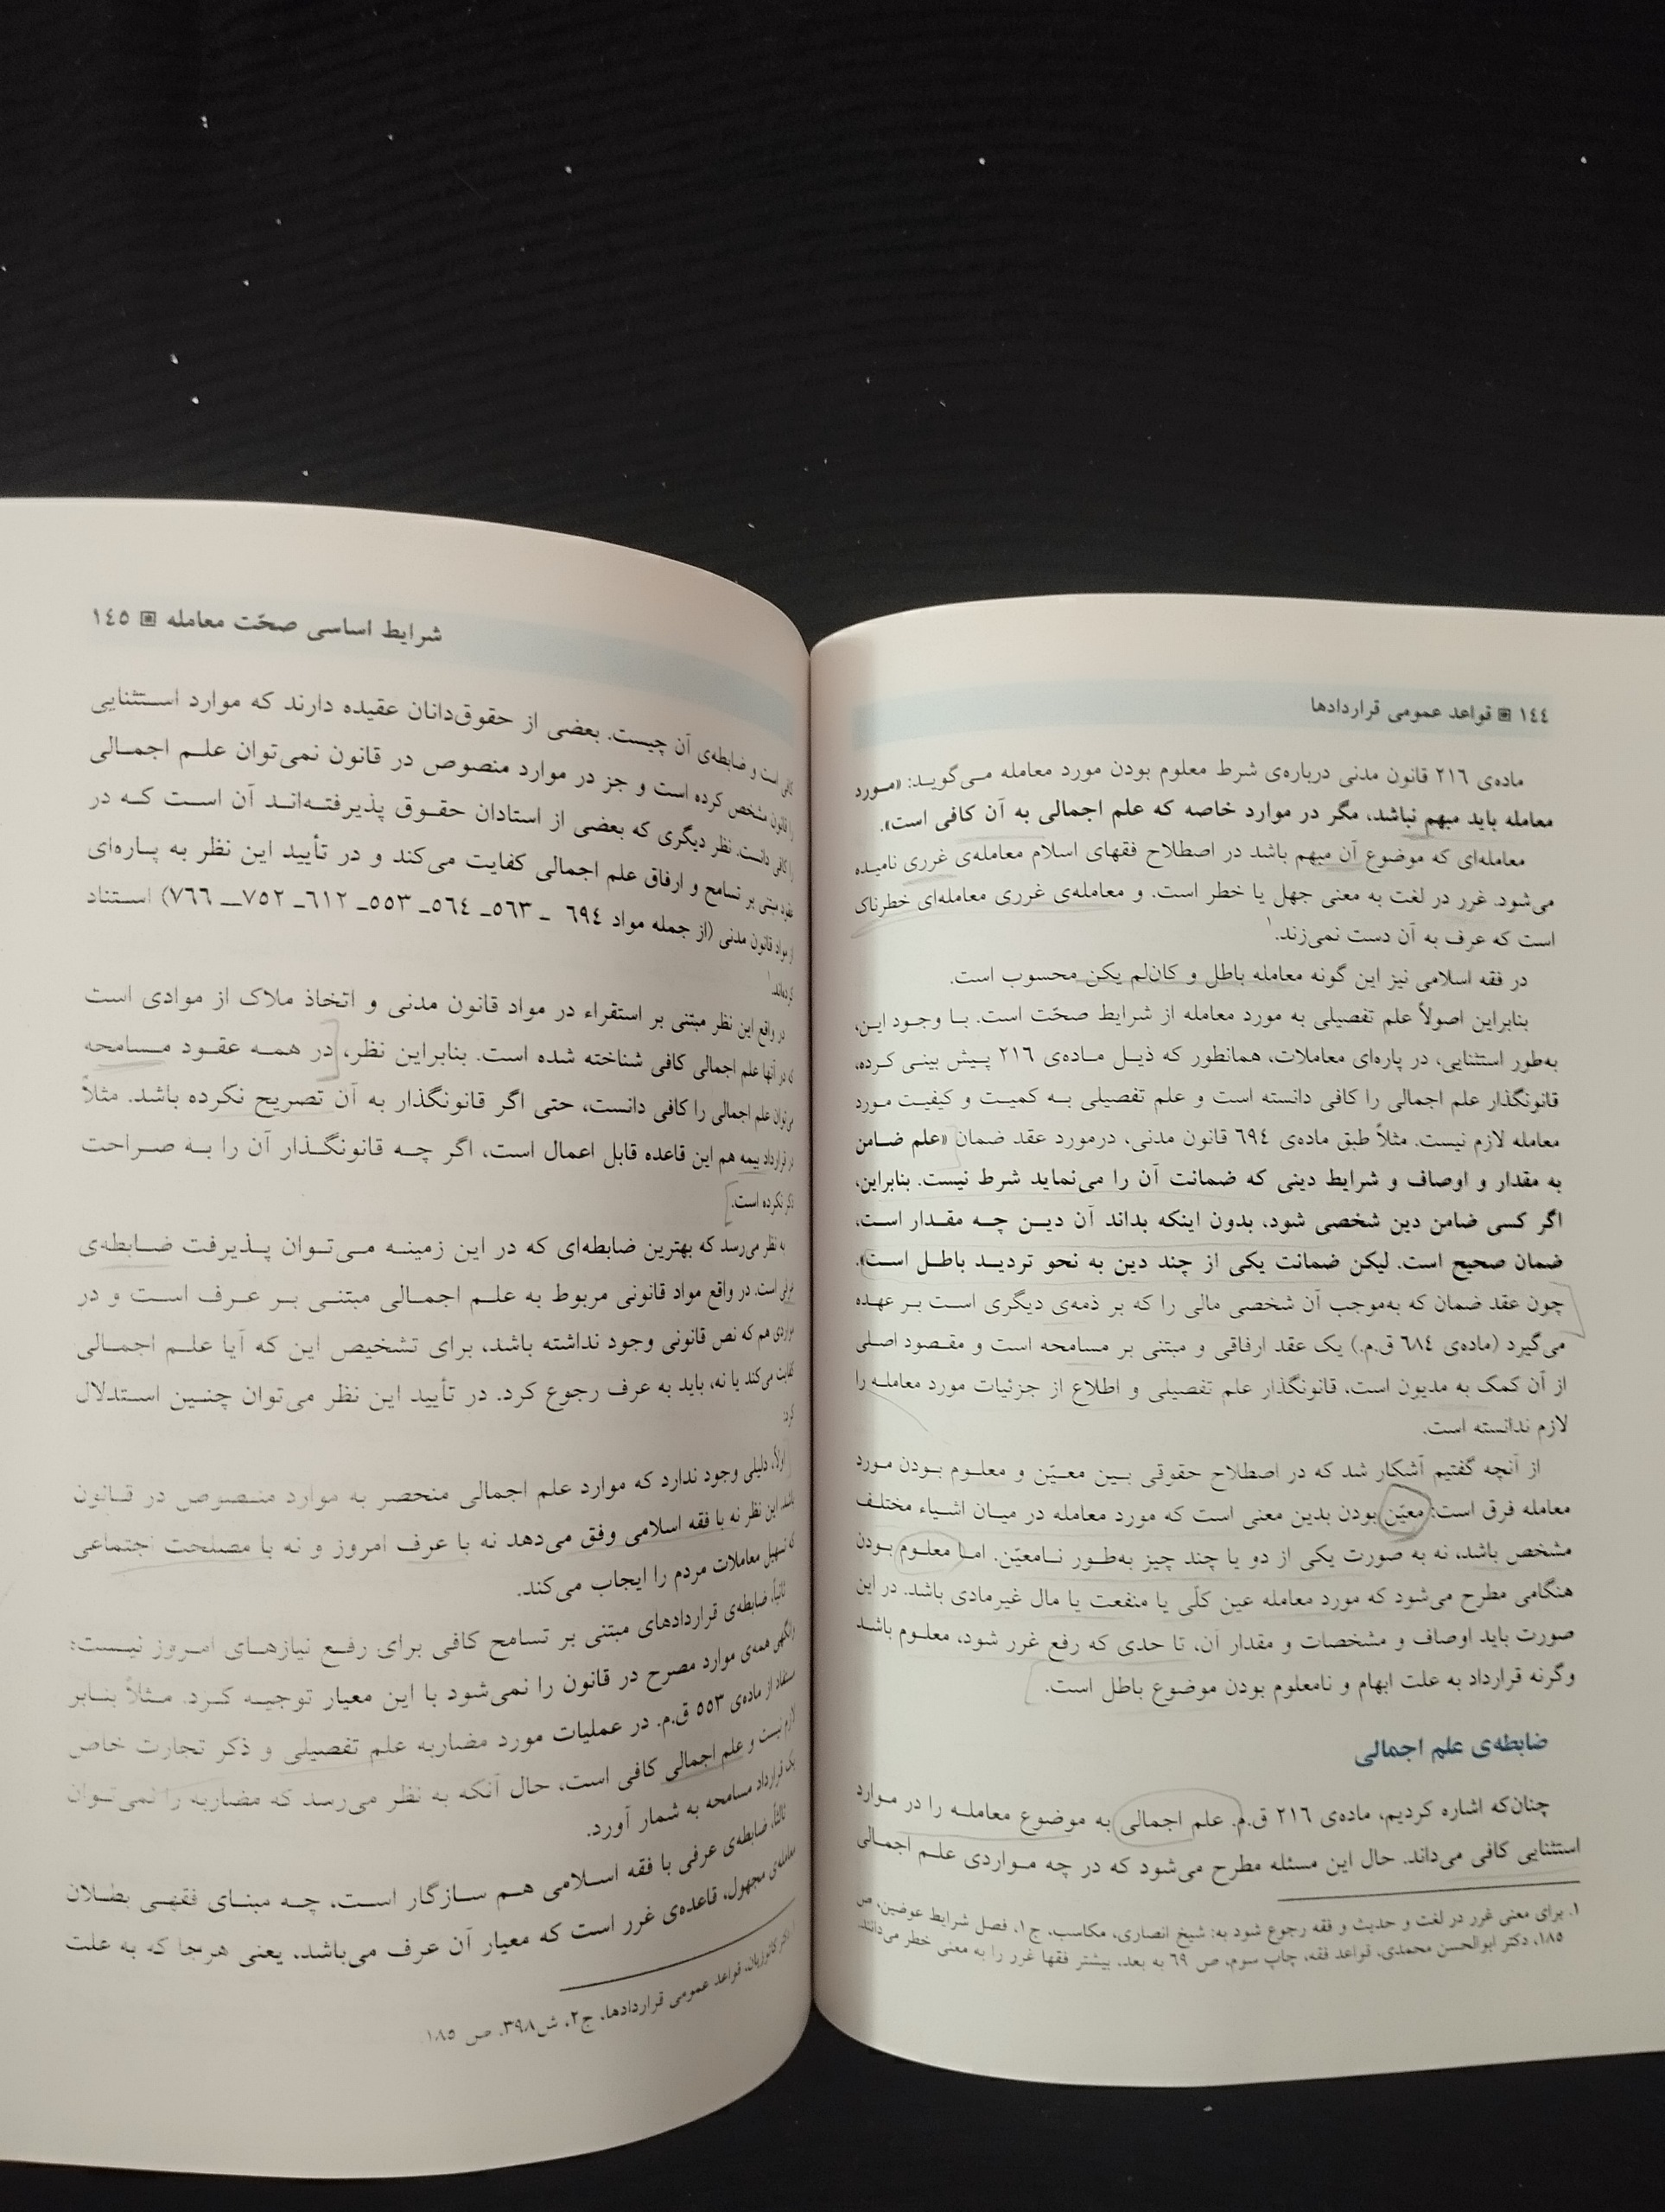 ١٤٤ قواعد عمومی قراردادها
ماده‌ی ٢١٦ قانون مدنی درباره‌ی شرط معلوم بودن مورد معامله می‌گوید: «مورد
معامله باید مبهم نباشد، مگر در موارد خاصه که علم اجمالی به آن کافی است».
معامله‌ای که موضوع آن مبهم باشد در اصطلاح فقهای اسلام معامله‌ی غرری نامیده
می‌شود. غرر در لغت به معنی جهل یا خطر است. و معامله‌ی غرری معامله‌ای خطرناک
است که عرف به آن دست نمی‌زند.١
در فقه اسلامی نیز این گونه معامله باطل و کان‌لم یکن محسوب است.
بنابراین اصولاً علم تفصیلی به مورد معامله از شرایط صحّت است. با وجود این،
به‌طور استثنایی، در پاره‌ای معاملات، همانطور که ذیل ماده‌ی ٢١٦ پیش بینی کرده،
قانونگذار علم اجمالی را کافی دانسته است و علم تفصیلی به کمیت و کیفیت مورد
معامله لازم نیست. مثلاً طبق ماده‌ی ٦٩٤ قانون مدنی، درمورد عقد ضمان «علم ضامن
به مقدار و اوصاف و شرایط دینی که ضمانت آن را می‌نماید شرط نیست. بنابراین،
اگر کسی ضامن دین شخصی شود، بدون اینکه بداند آن دین چه مقدار است،
ضمان صحیح است. لیکن ضمانت یکی از چند دین به نحو تردید باطل است».
چون عقد ضمان که به‌موجب آن شخصی مالی را که بر ذمه‌ی دیگری است بر عهده
می‌گیرد (ماده‌ی ٦٨٤ ق.م.) یک عقد ارفاقی و مبتنی بر مسامحه است و مقصود اصلی
از آن کمک به مدیون است، قانونگذار علم تفصیلی و اطلاع از جزئیات مورد معامله را
لازم ندانسته است.
از آنچه گفتیم آشکار شد که در اصطلاح حقوقی بین معیّن و معلوم بودن مورد
معامله فرق است: معیّن بودن بدین معنی است که مورد معامله در میان اشیاء مختلف
مشخص باشد، نه به صورت یکی از دو یا چند چیز به‌طور نامعیّن. اما معلوم بودن
هنگامی مطرح می‌شود که مورد معامله عین کلّی یا منفعت یا مال غیرمادی باشد. در این
صورت باید اوصاف و مشخصات و مقدار آن، تا حدی که رفع غرر شود، معلوم باشد
وگرنه قرارداد به علت ابهام و نامعلوم بودن موضوع باطل است.
ضابطه‌ی علم اجمالی
چنان‌که اشاره کردیم، ماده‌ی ٢١٦ ق.م. علم اجمالی به موضوع معامله را در موارد
استثنایی کافی می‌داند. حال این مسئله مطرح می‌شود که در چه مواردی علم اجمالی
١. برای معنی غرر در لغت و حدیث و فقه رجوع شود به: شیخ انصاری، مکاسب، ج ١، فصل شرایط عوضین، ص
١٨٥، دکتر ابوالحسن محمدی، قواعد فقه، چاپ سوم، ص ٦٩ به بعد. بیشتر فقها غرر را به معنی خطر می‌دانند.
شرایط اساسی صحّت معامله ١٤٥
کافی است و ضابطه‌ی آن چیست. بعضی از حقوق‌دانان عقیده دارند که موارد استثنایی
را قانون مشخص کرده است و جز در موارد منصوص در قانون نمی‌توان علم اجمالی
را کافی دانست. نظر دیگری که بعضی از استادان حقوق پذیرفته‌اند آن است که در
عقود مبتنی بر تسامح و ارفاق علم اجمالی کفایت می‌کند و در تأیید این نظر به پاره‌ای
از مواد قانون مدنی (از جمله مواد ٦٩٤ ـ ٥٦٣ـ ٥٦٤ـ ٥٥٣ـ ٦١٢ـ ٧٥٢ـ ٧٦٦) استناد
کرده‌اند.١
در واقع این نظر مبتنی بر استقراء در مواد قانون مدنی و اتخاذ ملاک از موادی است
که در آنها علم اجمالی کافی شناخته شده است. بنابراین نظر، در همه عقود مسامحه
می‌توان علم اجمالی را کافی دانست، حتی اگر قانونگذار به آن تصریح نکرده باشد. مثلاً
در قرارداد بیمه هم این قاعده قابل اعمال است، اگر چه قانونگذار آن را به صراحت
ذکر نکرده است.
به نظر می‌رسد که بهترین ضابطه‌ای که در این زمینه می‌توان پذیرفت ضابطه‌ی
عرفی است. در واقع مواد قانونی مربوط به علم اجمالی مبتنی بر عرف است و در
مواردی هم که نص قانونی وجود نداشته باشد، برای تشخیص این که آیا علم اجمالی
کفایت می‌کند یا نه، باید به عرف رجوع کرد. در تأیید این نظر می‌توان چنین استدلال
کرد:
اولاً، دلیلی وجود ندارد که موارد علم اجمالی منحصر به موارد منصوص در قانون
باشد. این نظر نه با فقه اسلامی وفق می‌دهد نه با عرف امروز و نه با مصلحت اجتماعی
که تسهیل معاملات مردم را ایجاب می‌کند.
ثانیاً، ضابطه‌ی قراردادهای مبتنی بر تسامح کافی برای رفع نیازهای امروز نیست؛
وانگهی همه‌ی موارد مصرح در قانون را نمی‌شود با این معیار توجیه کرد. مثلاً بنابر
مستفاد از ماده‌ی ٥٥٣ ق.م. در عملیات مورد مضاربه علم تفصیلی و ذکر تجارت خاص
لازم نیست و علم اجمالی کافی است، حال آنکه به نظر می‌رسد که مضاربه را نمی‌توان
یک قرارداد مسامحه به شمار آورد.
ثالثاً، ضابطه‌ی عرفی با فقه اسلامی هم سازگار است، چه مبنای فقهی بطلان
معامله‌ی مجهول، قاعده‌ی غرر است که معیار آن عرف می‌باشد، یعنی هرجا که به علت
١. دکتر کاتوزیان، قواعد عمومی قراردادها، ج٢، ش٣٩٨، ص ١٨٥.